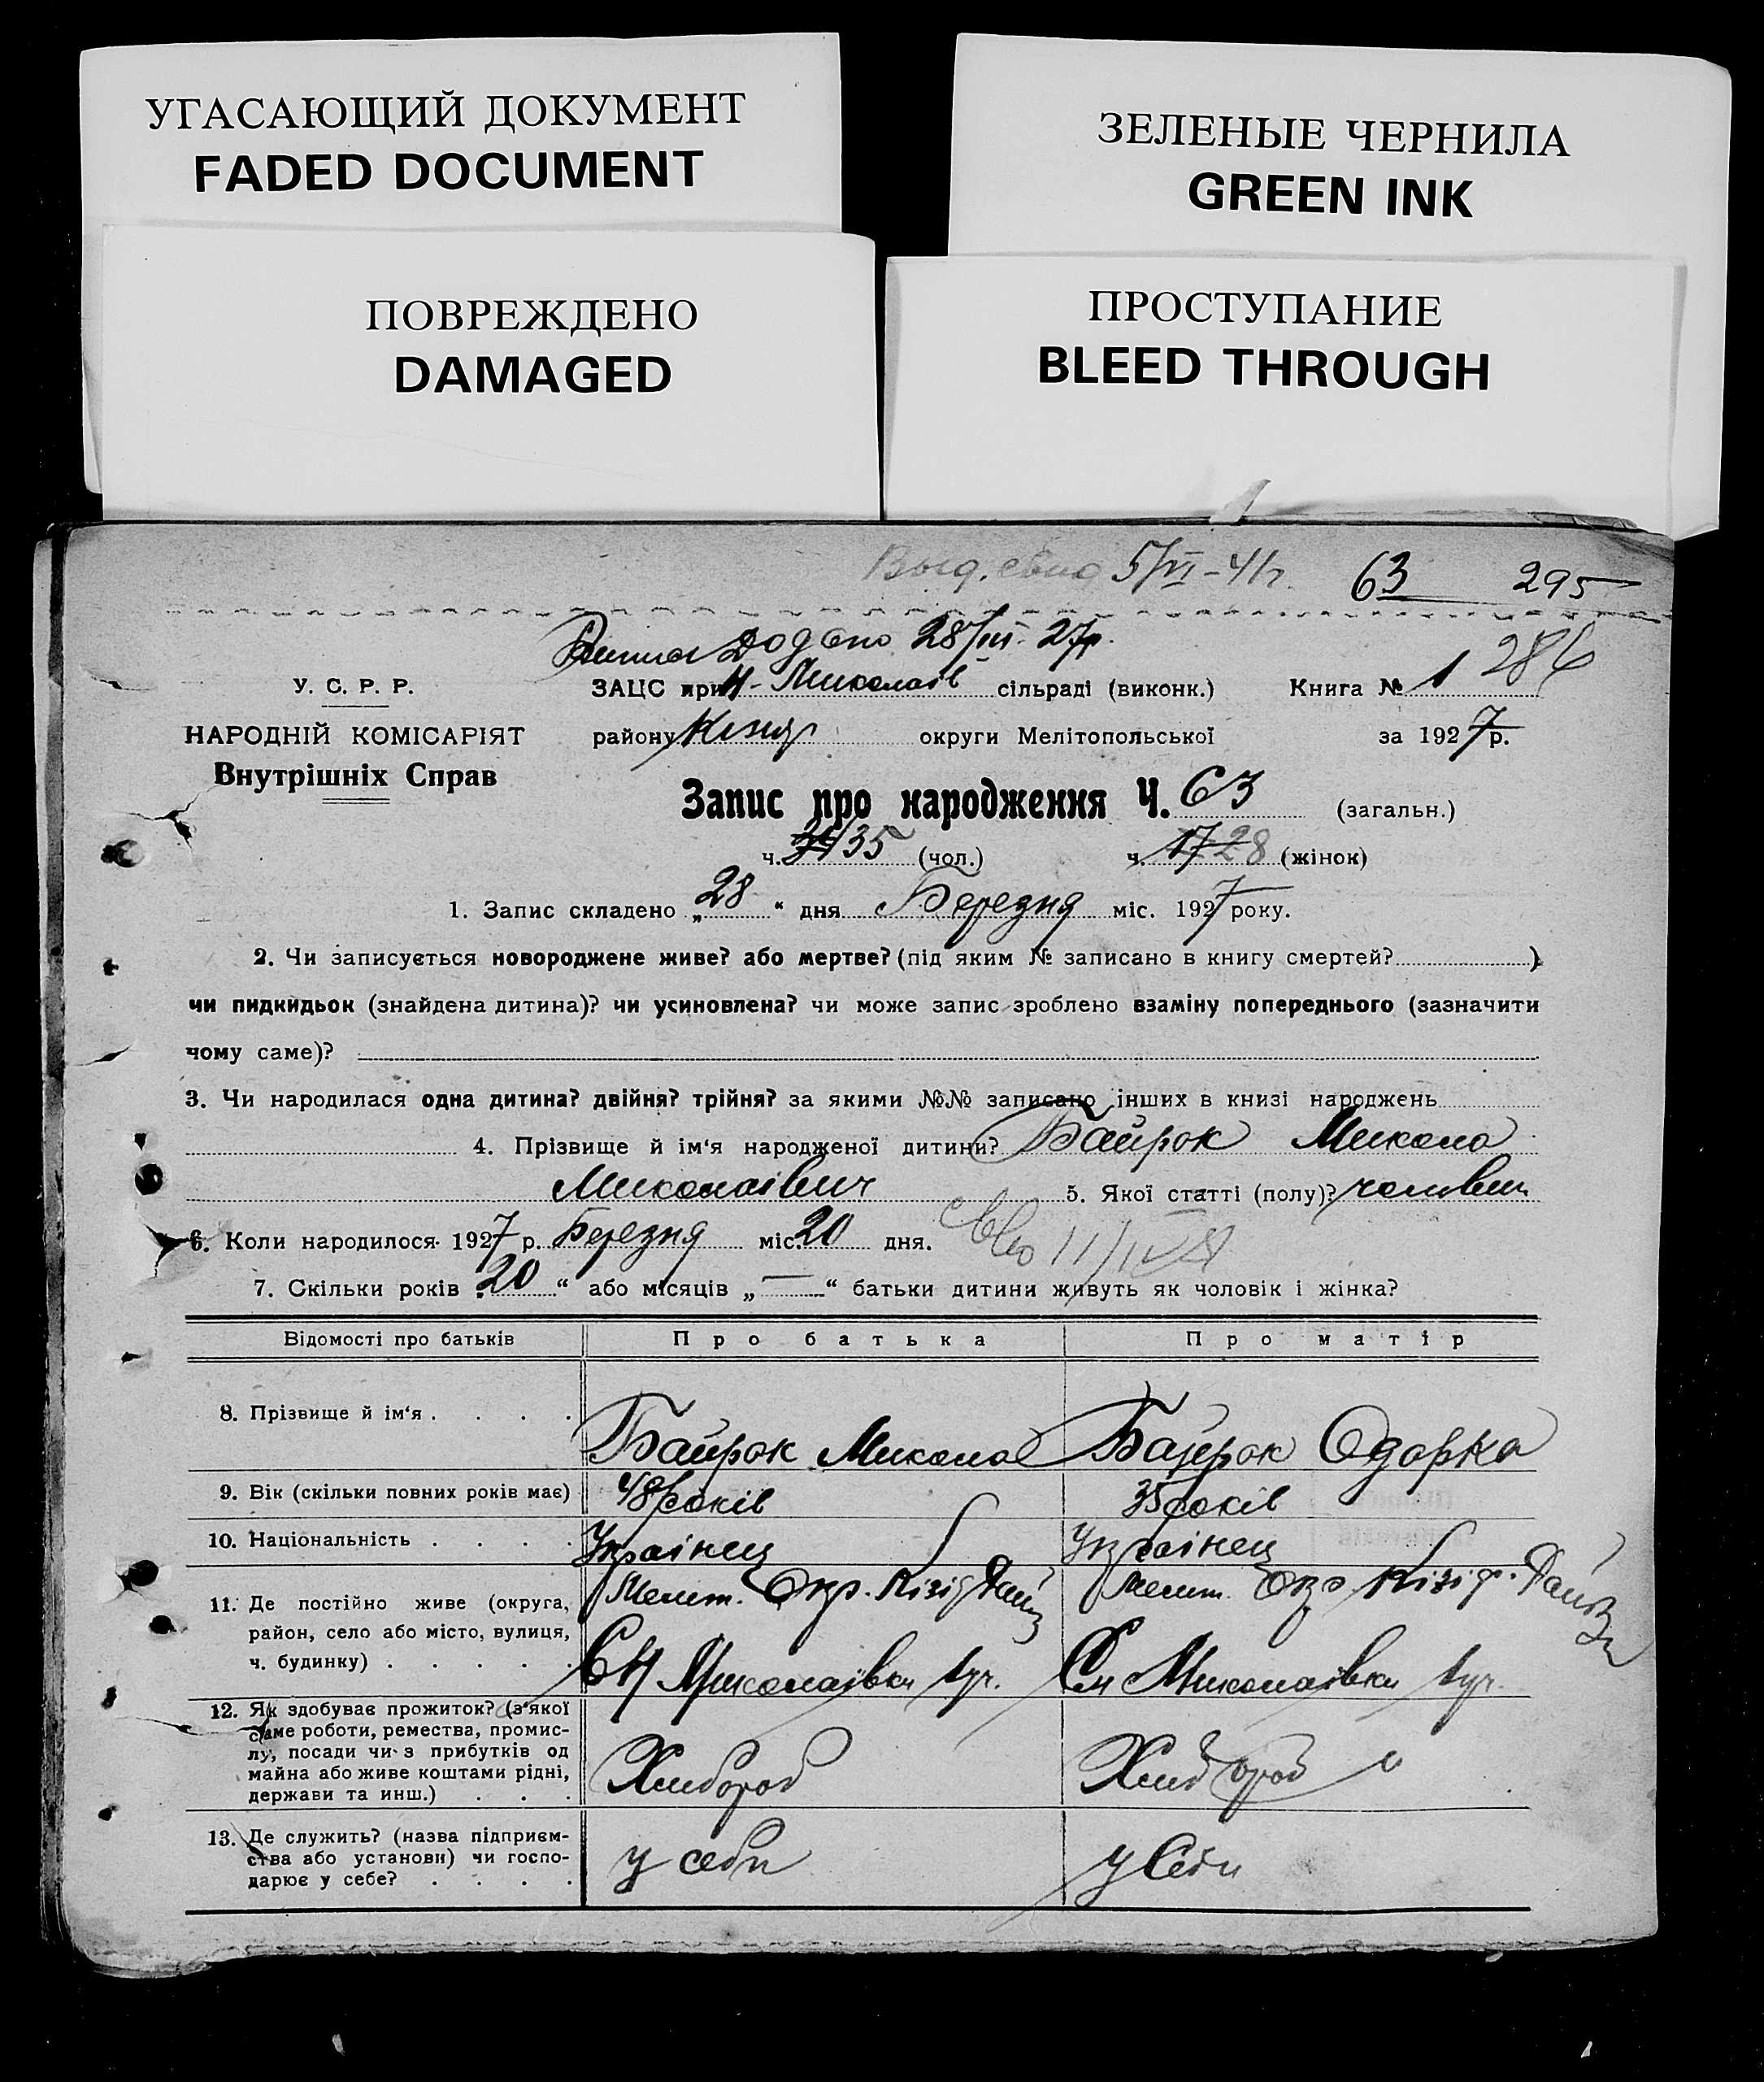 УГАСАЮЩИЙ ДОКУМЕНТ
FADED DOCUMENT
ЗЕЛЕНЫЕ ЧЕРНИЛА
GREEN INK
ПОВРЕЖДЕНО
DAMAGED
ПРОСТУПАНИЕ
BLEED THROUGH
5/VI-41 63 295
28/III. 27р.
У. С. Р. Р. ЗАЦС при Н-Миколаїв сільраді (виконк.) Книга № 1 286
НАРОДНІЙ КОМІСАРІЯТ району округи Мелітопольської за 1927 р.
Внутрішніх Справ
Запис про народження Ч. 63 (загальн.)
ч. 34/35 (чол.) ч. 17 28 (жінок)
1. Запис складено „28“ дня Березня міс. 1927 року.
2. Чи записується новороджене живе? або мертве? (під яким № записано в книгу смертей? )
чи пидкидьок (знайдена дитина)? чи усиновлена? чи може запис зроблено взаміну попереднього (зазначити
чому саме)?
3. Чи народилася одна дитина? двійня? трійня? за якими №№ записано інших в книзі народжень
4. Прізвище й ім‘я народженої дитини? Байрок Микола
Миколаївич 5. Якої статті (полу)?
6. Коли народилося 1927 р. Березня міс. 20 дня.
7. Скільки років „20“ або місяців „—“ батьки дитини живуть як чоловік і жінка?
Відомості про батьків Про батька Про матір
8. Прізвище й ім‘я . . . . Байрок Микола Байрок Одарка
9. Вік (скільки повних років має) 48 років 35 років
10. Національність . . . . Українец Українец
11. Де постійно живе (округа, Мелит. Окр. Мелит. Окр.
район, село або місто, вулиця,
ч. будинку) . . . . . С Н Миколаївки вул. Сн Миколаївки вул.
12. Як здобуває прожиток? (з‘якої
саме роботи, ремества, промис-
лу, посади чи з прибутків од
майна або живе коштами рідні, Хлибороб Хлибороб
держави та инш.) . . .
13. Де служить? (назва підприєм-
ства або установи) чи госпо- у себи у Себи
дарює у себе? . . . .